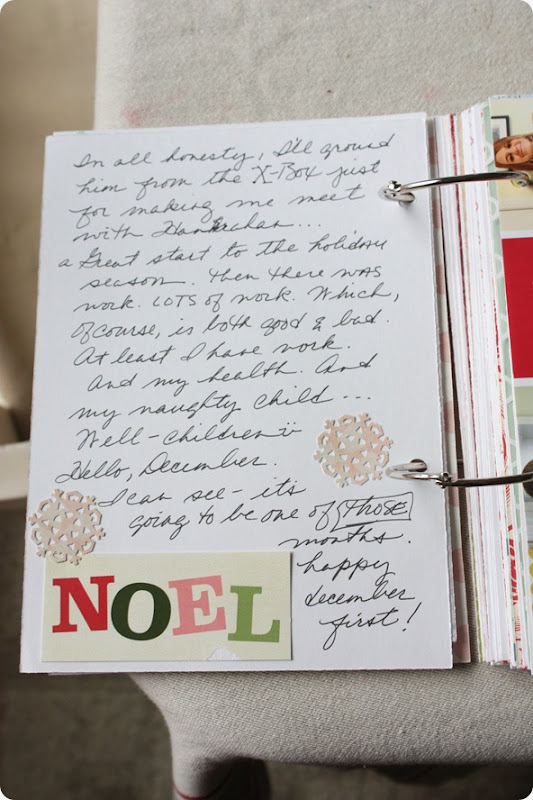 In all honesty, I'll ground
him from the X-Box just
for making me meet
with
a Great start to the holiday
season. Then there was
work. LOTS of work. Which,
of course, is both good & bad.
At least I have work.
And my health. And
my naughty child...
Well - children
Hello, December.
I can see - it's
going to be one of those
months.
happy
december
first!
NOEL